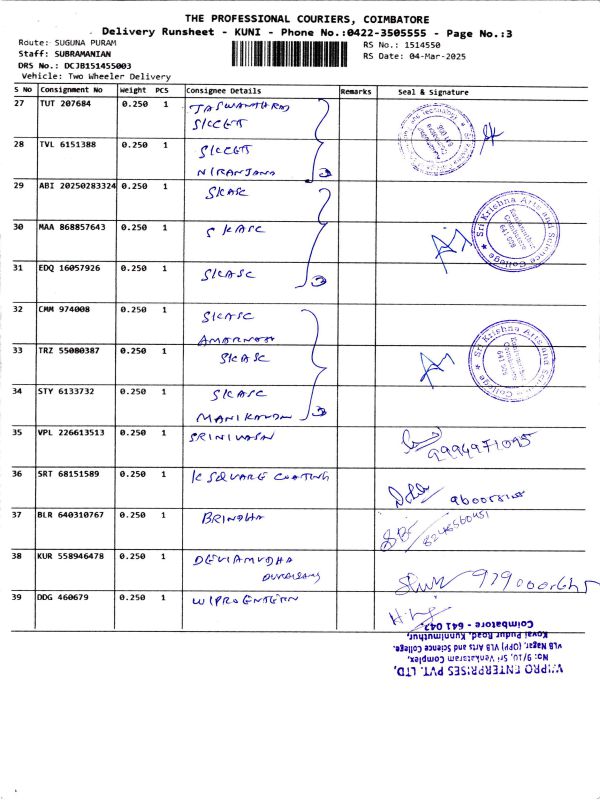 THE PROFESSIONAL COURIERS, COIMBATORE
Delivery Runsheet - KUNI - Phone No.:0422-3505555 - Page No.:3
Route: SUGUNA PURAM
RS No.: 1514550
Staff: SUBRAMANIAN
RS Date: 04-Mar-2025
DRS No.: DCJB151455003
Vehicle: Two Wheeler Delivery
S No Consignment No Weight PCS Consignee Details Remarks Seal & Signature
27 TUT 207684 0.250 1
SKCET
28 TVL 6151388 0.250 1 SKCET
NIRANJANA
29 ABI 20250283324 0.250 1 SKASC
30 MAA 868857643 0.250 1 SKASC
31 EDQ 16057926 0.250 1 SKASC
Sri Krishna Arts and Science College
Kuniamuthur
Coimbatore
641 008
32 CMM 974008 0.250 1 SKASC
33 TRZ 55080387 0.250 1 SKASC
34 STY 6133732 0.250 1 SKASC
MANIKANDN
Sri Krishna Arts and Science College
Kuniamuthur
Coimbatore
641 008
35 VPL 226613513 0.250 1 SRINIVASN
9994971095
36 SRT 68151589 0.250 1 K SQUARE COATING
37 BLR 640310767 0.250 1 BRINDHA
8246560451
38 KUR 558946478 0.250 1
39 DDG 460679 0.250 1 WIPRO ENTERN
WIPRO ENTERPRISES PVT. LTD,
No: 9/10, Sri Venkatsram Complex,
VLB Nagar, (OPP) VLB Arts and Science College,
Kovai Pudur Road, Kunnimuthur,
Coimbatore - 641 042.